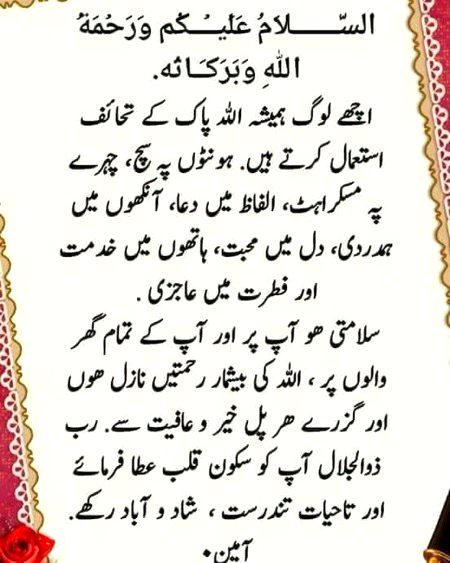 السّلَامُ عَلَيْكُم وَرَحْمَةُ
اللهِ وَبَرَكَاتُه.
اچھے لوگ ہمیشہ اللہ پاک کے تحائف
استعمال کرتے ہیں. ہونٹوں پہ سچ، چہرے
پہ مسکراہٹ، الفاظ میں دعا، آنکھوں میں
ہمدردی، دل میں محبت، ہاتھوں میں خدمت
اور فطرت میں عاجزی .
سلامتی ھو آپ پر اور آپ کے تمام گھر
والوں پر ، اللہ کی بیشمار رحمتیں نازل ھوں
اور گزرے ھر پل خیر و عافیت سے. رب
ذوالجلال آپ کو سکون قلب عطا فرمائے
اور تاحیات تندرست ، شاد و آباد رکھے.
آمین•